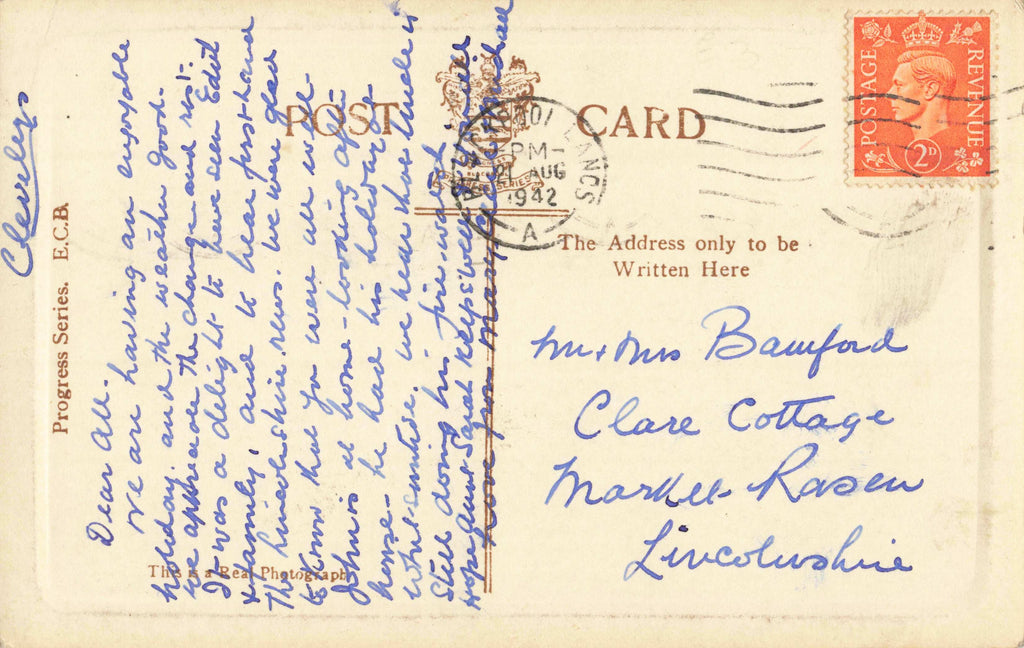 POST CARD
POSTAGE REVENUE
2D
PM
21 AUG
1942
LANCS
A
SERIES
The Address only to be
Written Here
Mr & Mrs Bamford
Clare Cottage
Market Rasen
Lincolnshire
Progress Series. E.C.B.
This is a Real Photograph
Cleveleys
Dear All.
We are having an enjoyable
holiday, and the weather good.
We appreciate the change and rest.
It was a delight to have seen Edit
& family, and to hear first-hand
The Lincolnshire news. We were glad
to know that you were all well.
John is at home - looking after
house - he had his holiday at
Whitsuntide. We hear that Uncle is
still doing his fire-watch.
Hope Aunt Sarah keeps well.
Love from